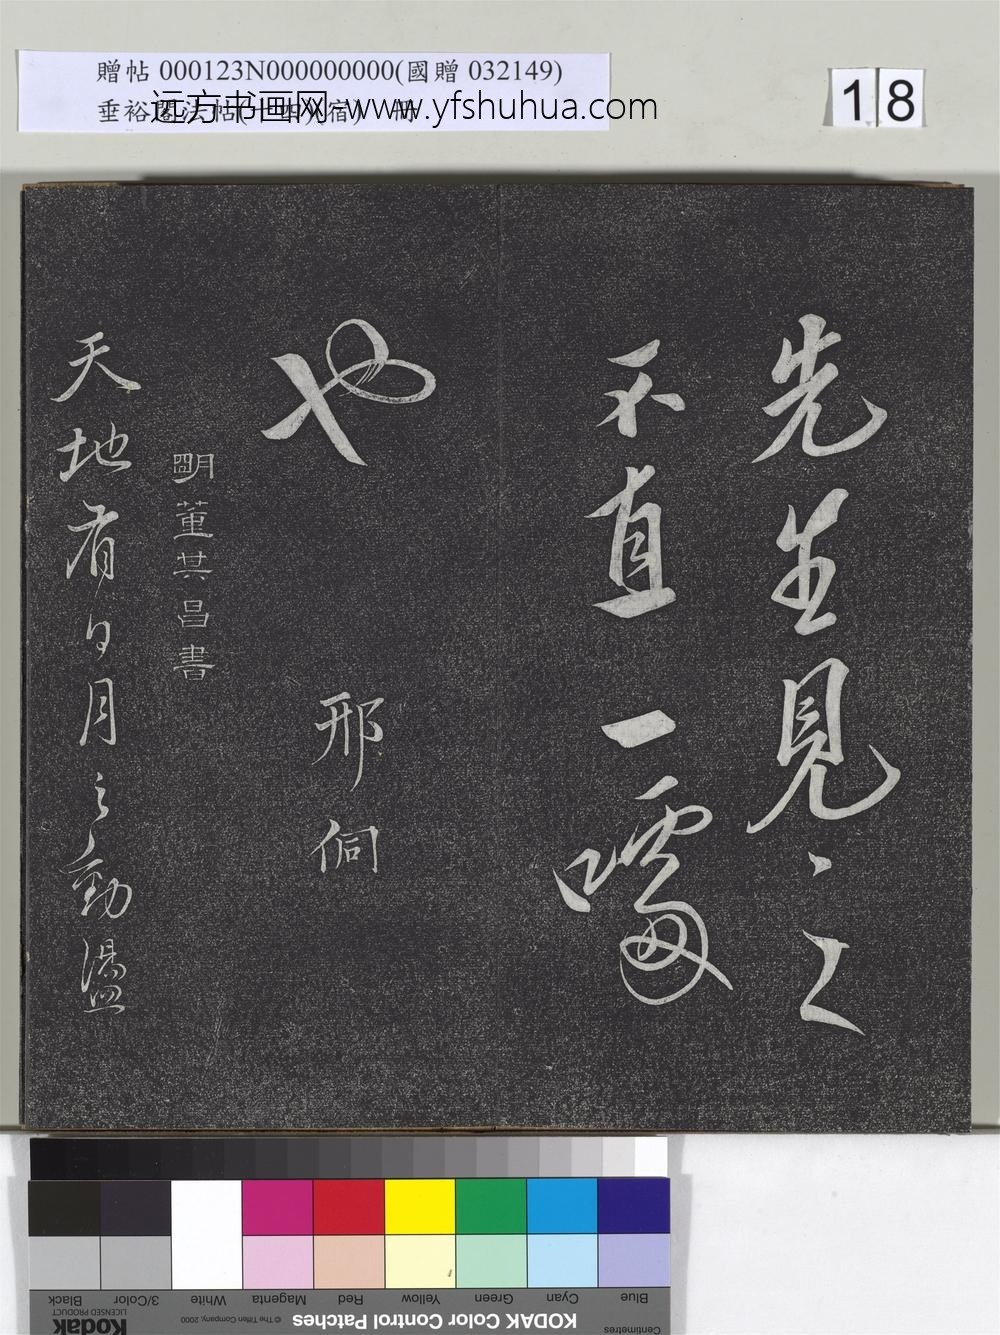 贈帖 000123N000000000(國贈 032149)
远方书画网 www.yfshuhua.com
垂裕閣法帖
宿
冊
18
先生見〻之
不直一噱
也
邢侗
明董其昌書
天地有日月之勤盪
Black
3/Color
White
Magenta
Red
Yellow
Green
Cyan
Blue
LICENSED PRODUCT
Kodak
© The Tiffen Company, 2000
KODAK Color Control Patches
Centimetres